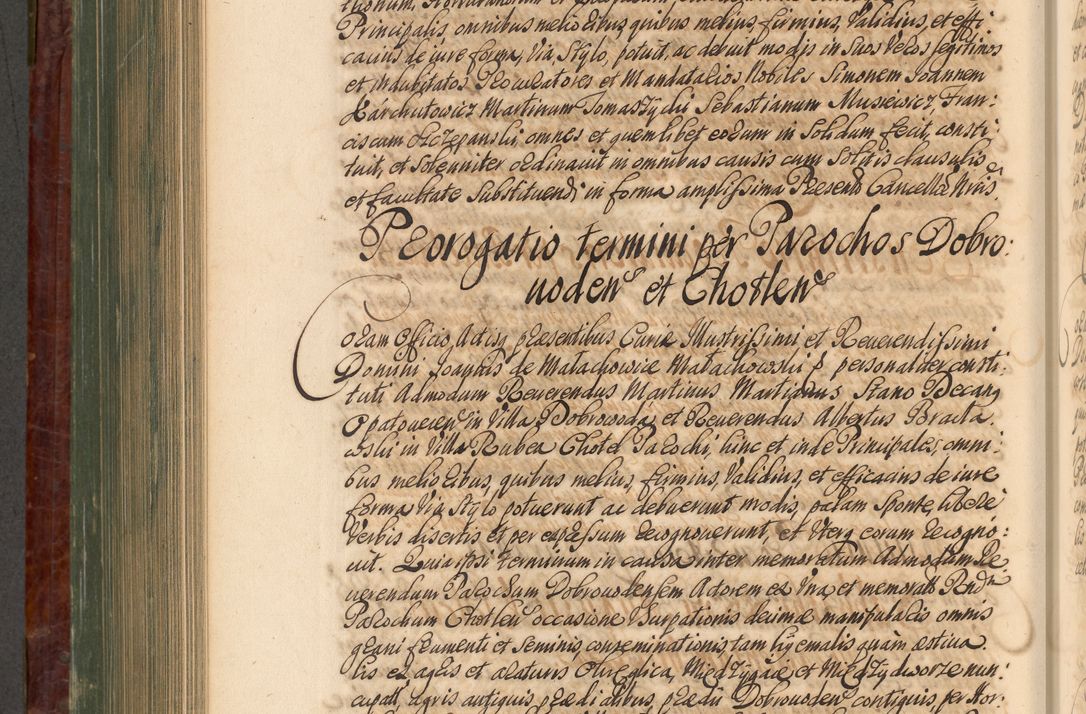 Principalis, omnibus melioribus, quibus melius, firmius, Validius, et effi
cacius de iure forma, Via, Stylo, potuit, ac debuit modis in Suos Veros legitimos
et Indubitatos Procuratores et Mandatarios Nobiles Simonem Joannem
Karchutowicz Martinum Tomaszydii Sebastianum Musiewicz, Fran:
ciscum Szczepanskii omnes et quemlibet eorum in Solidum fecit, consti:
tuit, et Solenniter ordinavit in omnibus causis cum Solitis clausulis
et facultate Substituendi in forma amplissima Praesentis Cancellae Nris
Prorogatio termini per Parochos Dobro:
uoden et Chotlen
Coram Officio, Actisq praesentibus Curiae Illustrissimi et Reuerendissimi
Domini Joannis de Malachowice Malachowskii P personaliter consti:
tuti Admodum Reuerendus Martinus Martianus Stano Decanq
Opatouecen in Villa Dobrowoda, et Reuerendus Albertus Brata
oskii in Villa Rubea Chotel Parochi, hinc et inde Principales, omni:
bus melioribus, quibus melius, firmius, Validius, et efficacius de iure
forma Via Stylo potuerunt ac debuerunt modis, palam Sponte, libere
Verbis disertis et per expressum recognouerunt, et Uterq eorum recogno:
uit. Quia ipsi terminum in causa inter memoratum Admodum Re
uerendum Parochum Dobrouodensem Actorem ex Una et memorat Rndum
Parochum Chotlen occasione Usurpationis decimae manipularis omnis
grani frumenti et Seminis, conseminationis, tam hyemalis quam aestiua
lis ex agris et areaturis Miedzygace et Miedzydworze nun:
cupatt, agris antiquis praedialibus, praedii Dobrouoden contiguis, per Hor: